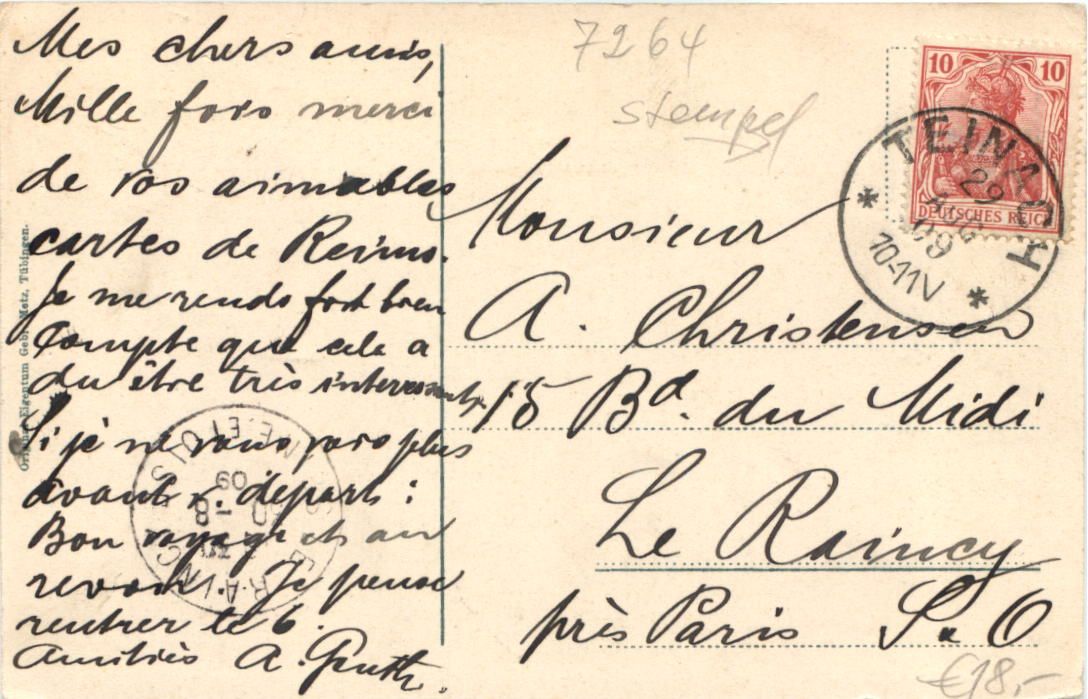 Mes chers amis,
Mille fois merci
de vos aimables
cartes de Reims.
Je me rends fort bien
Compte que cela a
du être très interessant.
Si je ne vous vois plus
avant v. départ:
Bon voyage et au
revoir. Je pense
rentrer le 6.
Amitiés A.
7264
stempel
10 10
DEUTSCHES REICH
TEINACH
29
AUG
09
10-11V
* *
Monsieur
A. Christensen
15 Bd. du Midi
Le Raincy
près Paris S & O
€18,-
Original-Eigentum Gebr. Metz, Tübingen.
LE RAINCY
SEINE-ET-OISE
30 - 8
09